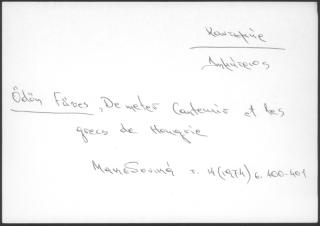 Καντεμίρ
Δημήτριος
Ödön Füves, Demeter Cantemir et les
grecs de Hongrie
τ. 4 (1974) σ. 400-401